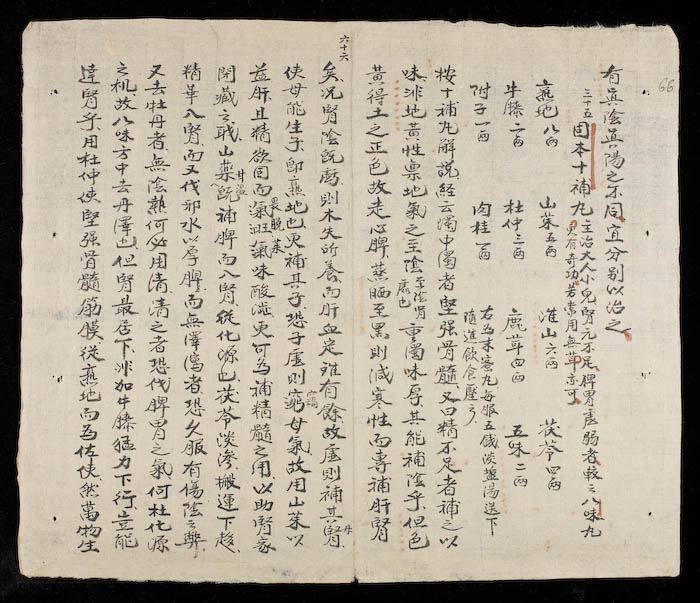 66
有眞陰眞陽之不同宜分別以治之
三十五 固本十補九 主治大人小兒腎元不足脾胃虛弱者較之八味九
更有奇功若常用無草亦可
熟地 八両 山茱 五両 淮山 六両 茯苓 四両
牛膝 二両 杜仲 三両 鹿茸 四両 五味 二両
附子 一両 肉桂 一両 右為末蜜九每服五錢淡盬湯送下
隨進飲食壓之
按十補九解説経云濁中濁者堅强骨髓又曰精不足者補之以
味非地黄性禀地氣之至陰 至陰腎臟也 重濁味厚其能補陰乎但色
黄得土之正色故走心脾蒸晒至黑則減寒性而專補肝腎
六十六
矣况腎陰既虧則木失所養而肝血定難有餘故虛則補其腎母
使母能生子即熟地也更補其子恐子虛則竊母氣故用山茱以
益肝且精欲固而氣旺氣味酸澁更可為補精髓之用以助腎家
閉藏之職山藥既補脾而入腎從化源也茯苓淡滲搬運下趍
精華入腎而又伐邪水以厚脾而無澤瀉者恐久服有傷陰之弊
又去牡丹者無陰熱何必用清清之者恐伐脾胃之氣何杜化源
之机故八味方中去丹澤也但腎最居下非加牛膝猛力下行豈能
達腎乎用杜仲使堅强骨髓筋膜從熟地而為佐使然萬物生